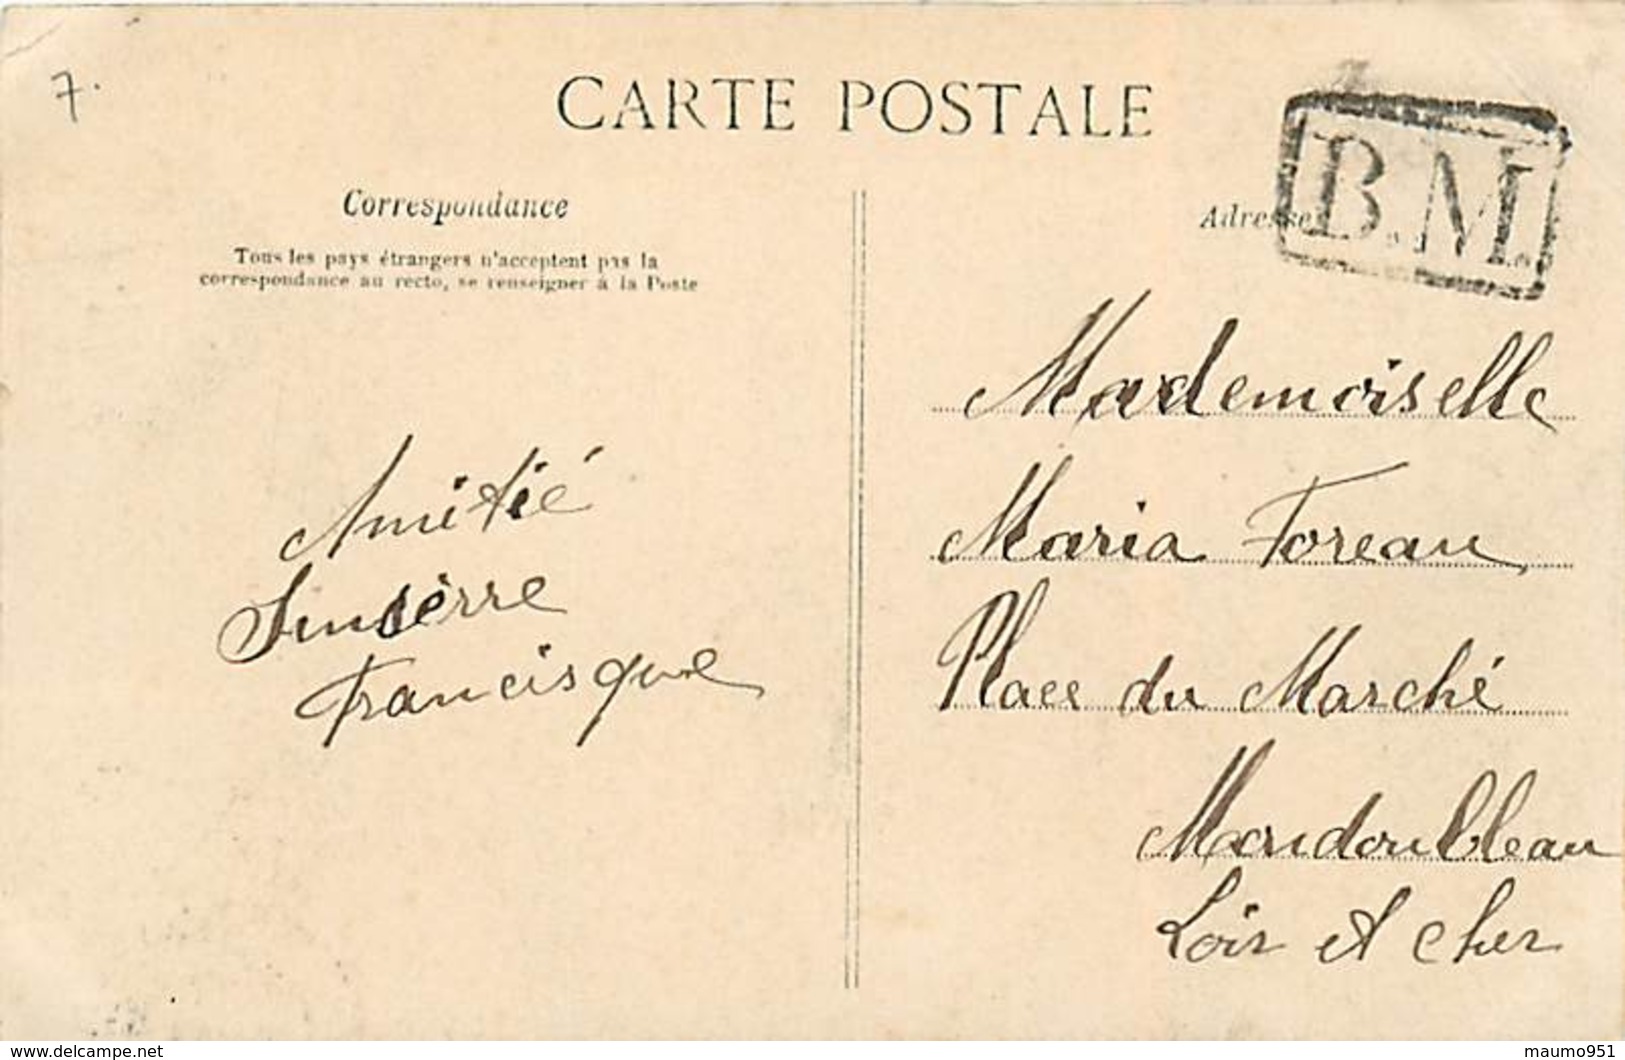 7.
CARTE POSTALE
B.M.
Correspondance
Adresse
Tous les pays étrangers n'acceptent pas la
correspondance au recto, se renseigner à la Poste
Amitié
Sinsèrre
Francisque
Mademoiselle
Maria Foreau
Place du Marché
Mondoubleau
Loir et Cher
www.delcampe.net
maumo951